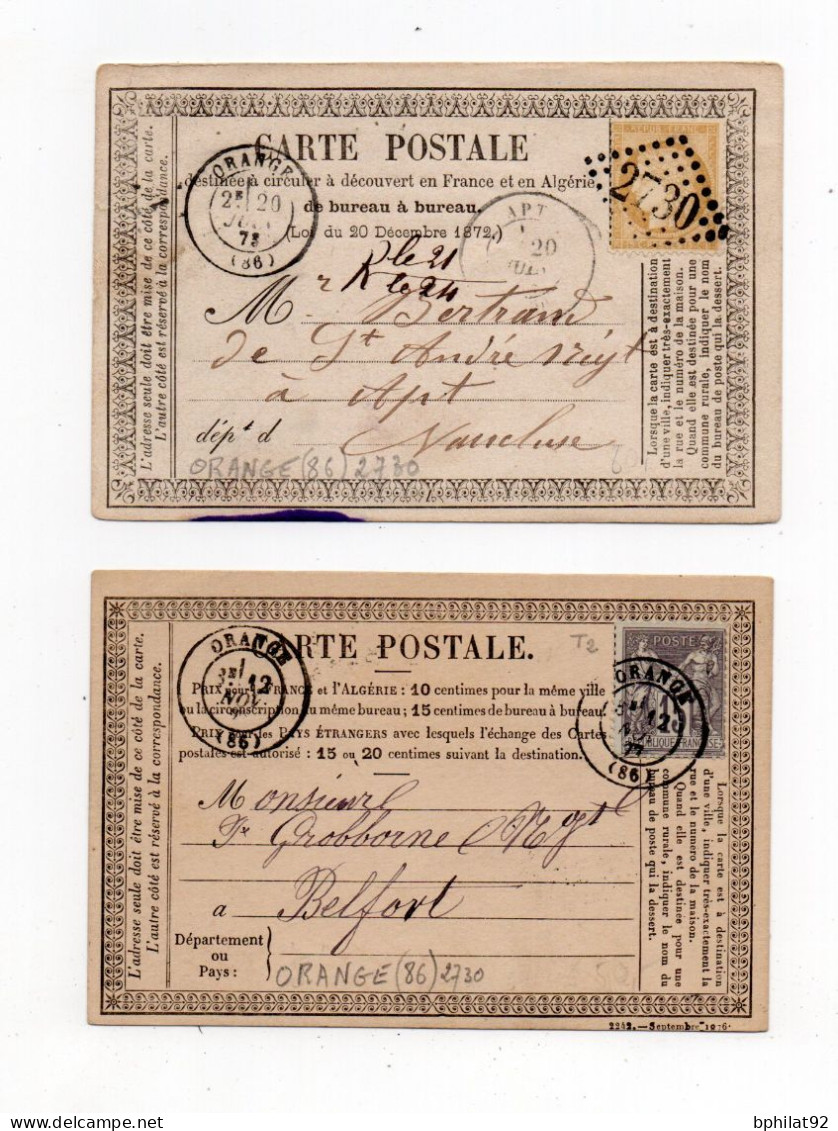 CARTE POSTALE
destinée à circuler à découvert en France et en Algérie
de bureau à bureau.
(Loi du 20 Décembre 1872,)
ORANGE
2E
20
73
(86)
APT
20
REPUB FRANC
2730
R le 21
R le 24
Mr Bertrand
de St André négt
à Apt
dépt d Vaucluse
ORANGE (86) 2730
L'adresse seule doit être mise de ce côté de la carte.
L'autre côté est réservé à la correspondance.
Lorsque la carte est à destination
d'une ville, indiquer très-exactement
la rue et le numéro de la maison.
Quand elle est destinée pour une
commune rurale, indiquer le nom
du bureau de poste qui la dessert.
CARTE POSTALE.
T2
PRIX pour la FRANCE et l'ALGÉRIE : 10 centimes pour la même ville
ou la circonscription du même bureau ; 15 centimes de bureau à bureau.
PRIX pour les PAYS ÉTRANGERS avec lesquels l'échange des Cartes
postales est autorisé : 15 ou 20 centimes suivant la destination.
ORANGE
3E
12
NOV
(86)
POSTE
REPUBLIQUE FRANCAISE
ORANGE
12
77
(86)
Monsieur
Fr Grobborne Negt
a Belfort
Département
ou
Pays :
ORANGE (86) 2730
L'adresse seule doit être mise de ce côté de la carte.
L'autre côté est réservé à la correspondance.
Lorsque la carte est à destination
d'une ville, indiquer très-exactement la
rue et le numéro de la maison.
Quand elle est destinée pour une
commune rurale, indiquer le nom du
bureau de poste qui la dessert.
2242.—Septembre 1876.
bphilat92